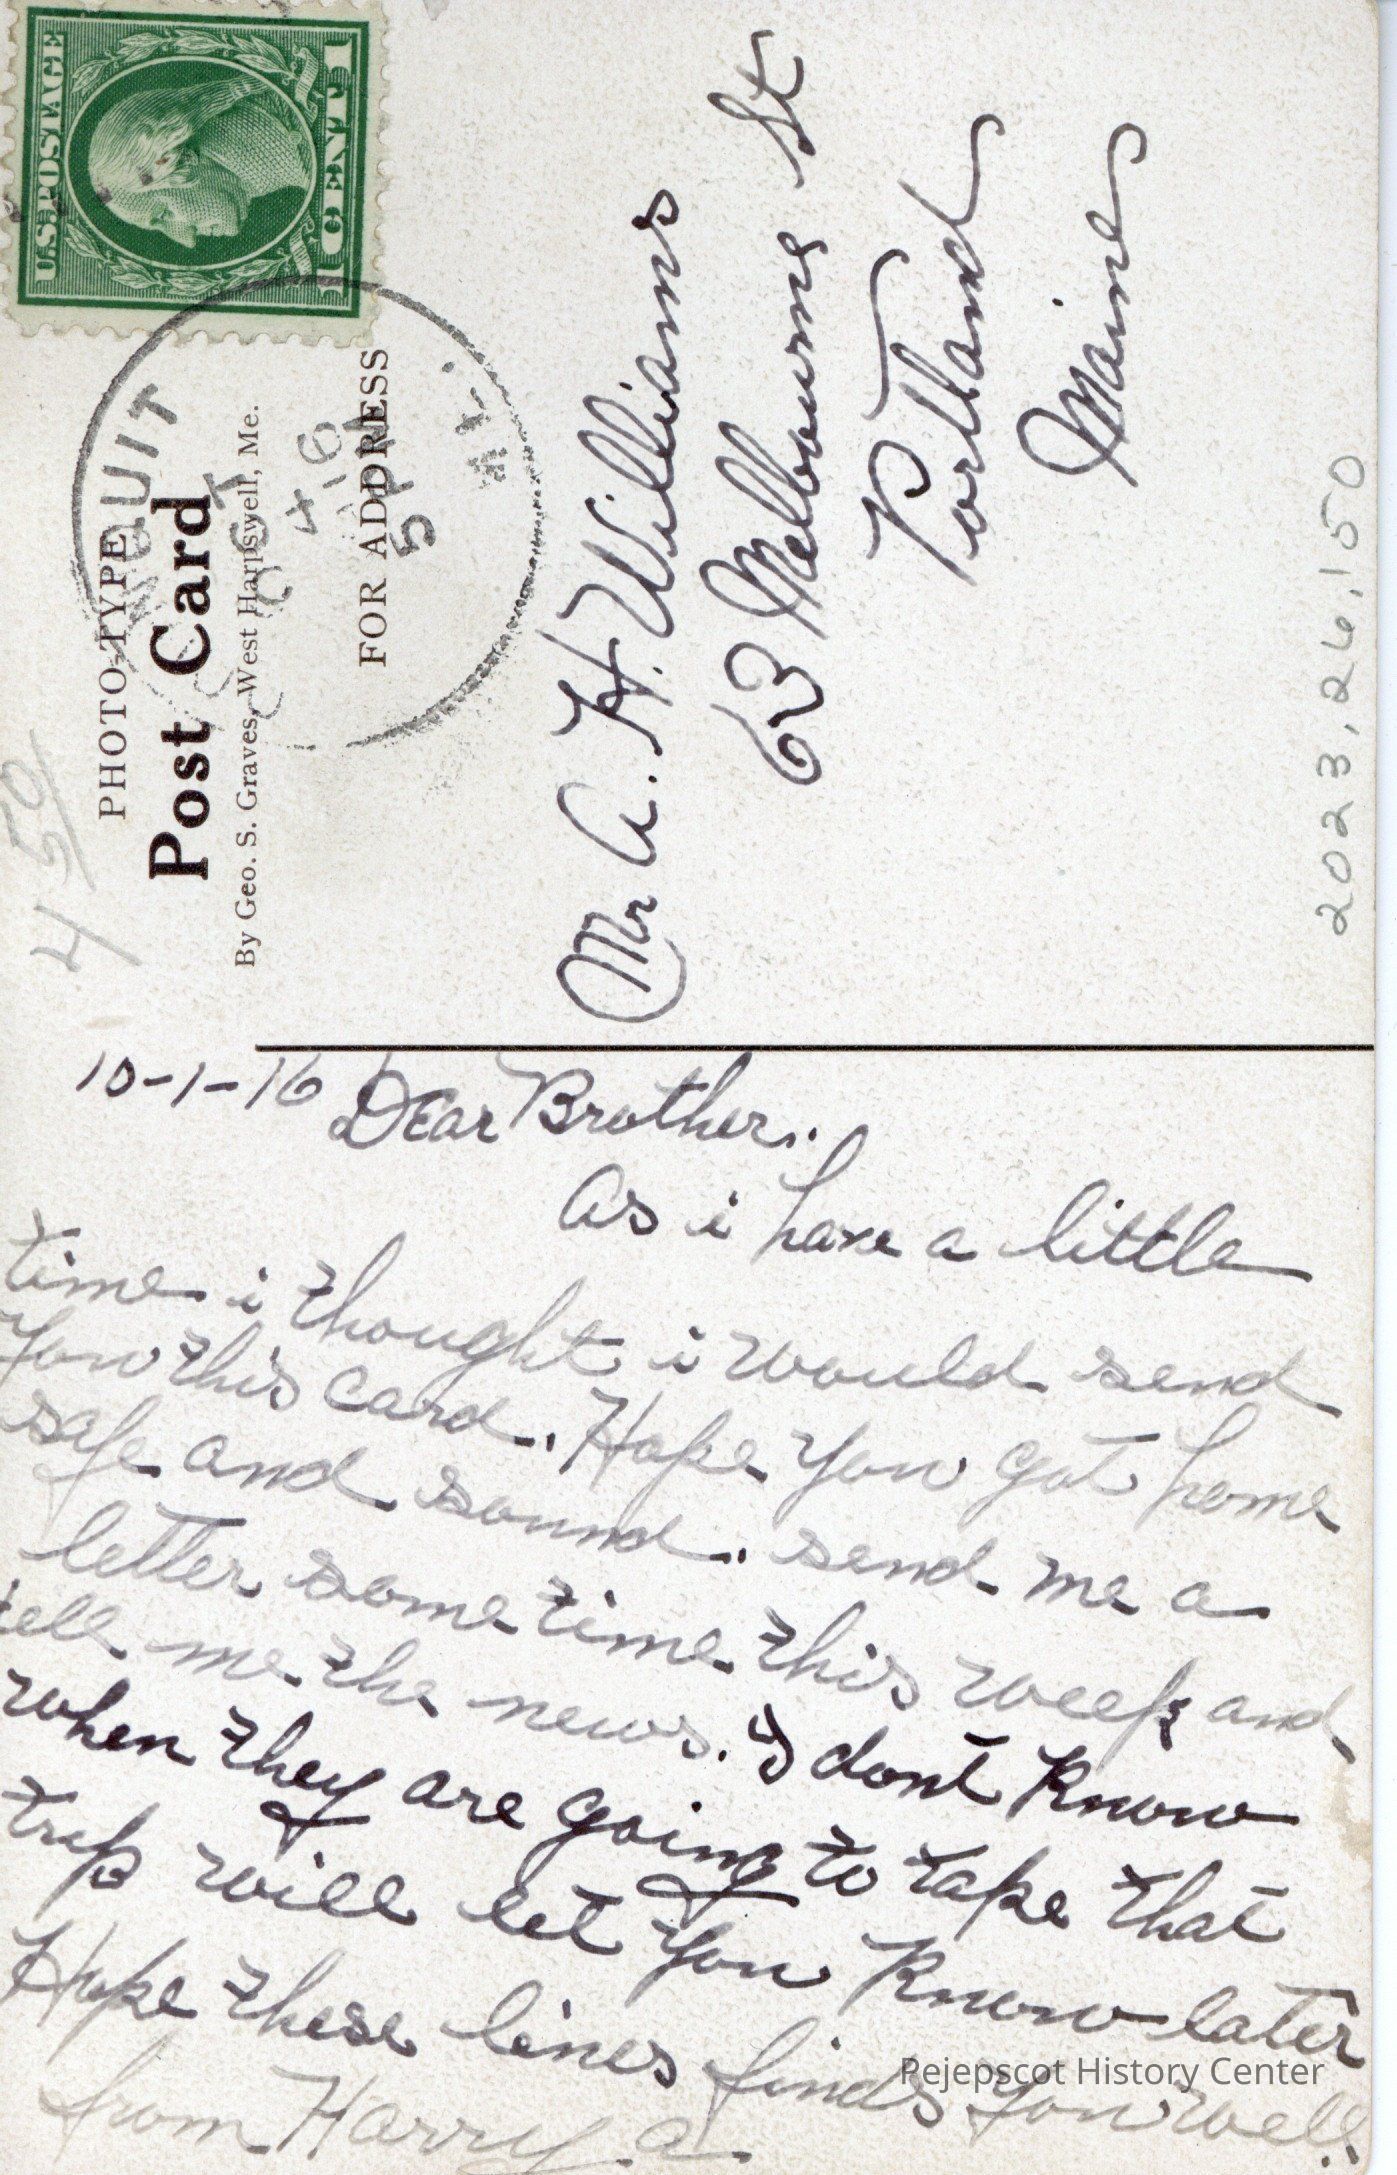 U.S. POSTAGE
1 CENT 1
PHOTO-TYPE
Post Card
By Geo. S. Graves, West Harpswell, Me.
FOR ADDRESS
OCT
4
5 PM
4 50
Mr A. H. Williams
63 Melbourne St
Portland
Maine
2023.26.150
10-1-16 Dear Brother..
As i have a little
time i thought i would send
You this card. Hope You got home
safe and sound. send me a
letter some time this week and
tell me the news. i dont Know
when they are going to take that
trip will let You Know later
Hope these lines finds You well.
from Harry. a.
Pejepscot History Center